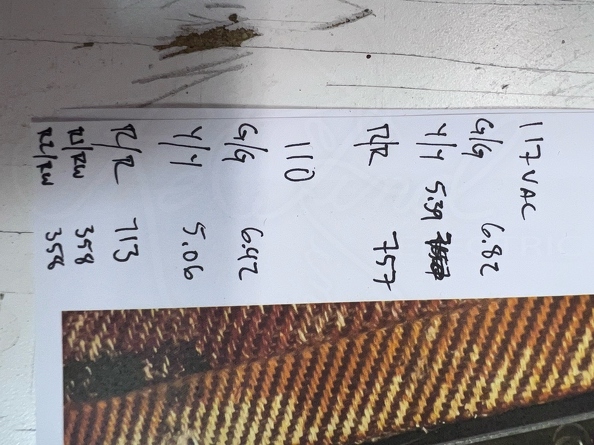 117 VAC
G/G 6.82
Y/Y 5.39
R/R 757
110
G/G 6.42
Y/Y 5.06
R/R 713
R1/RW 358
R2/RW 358